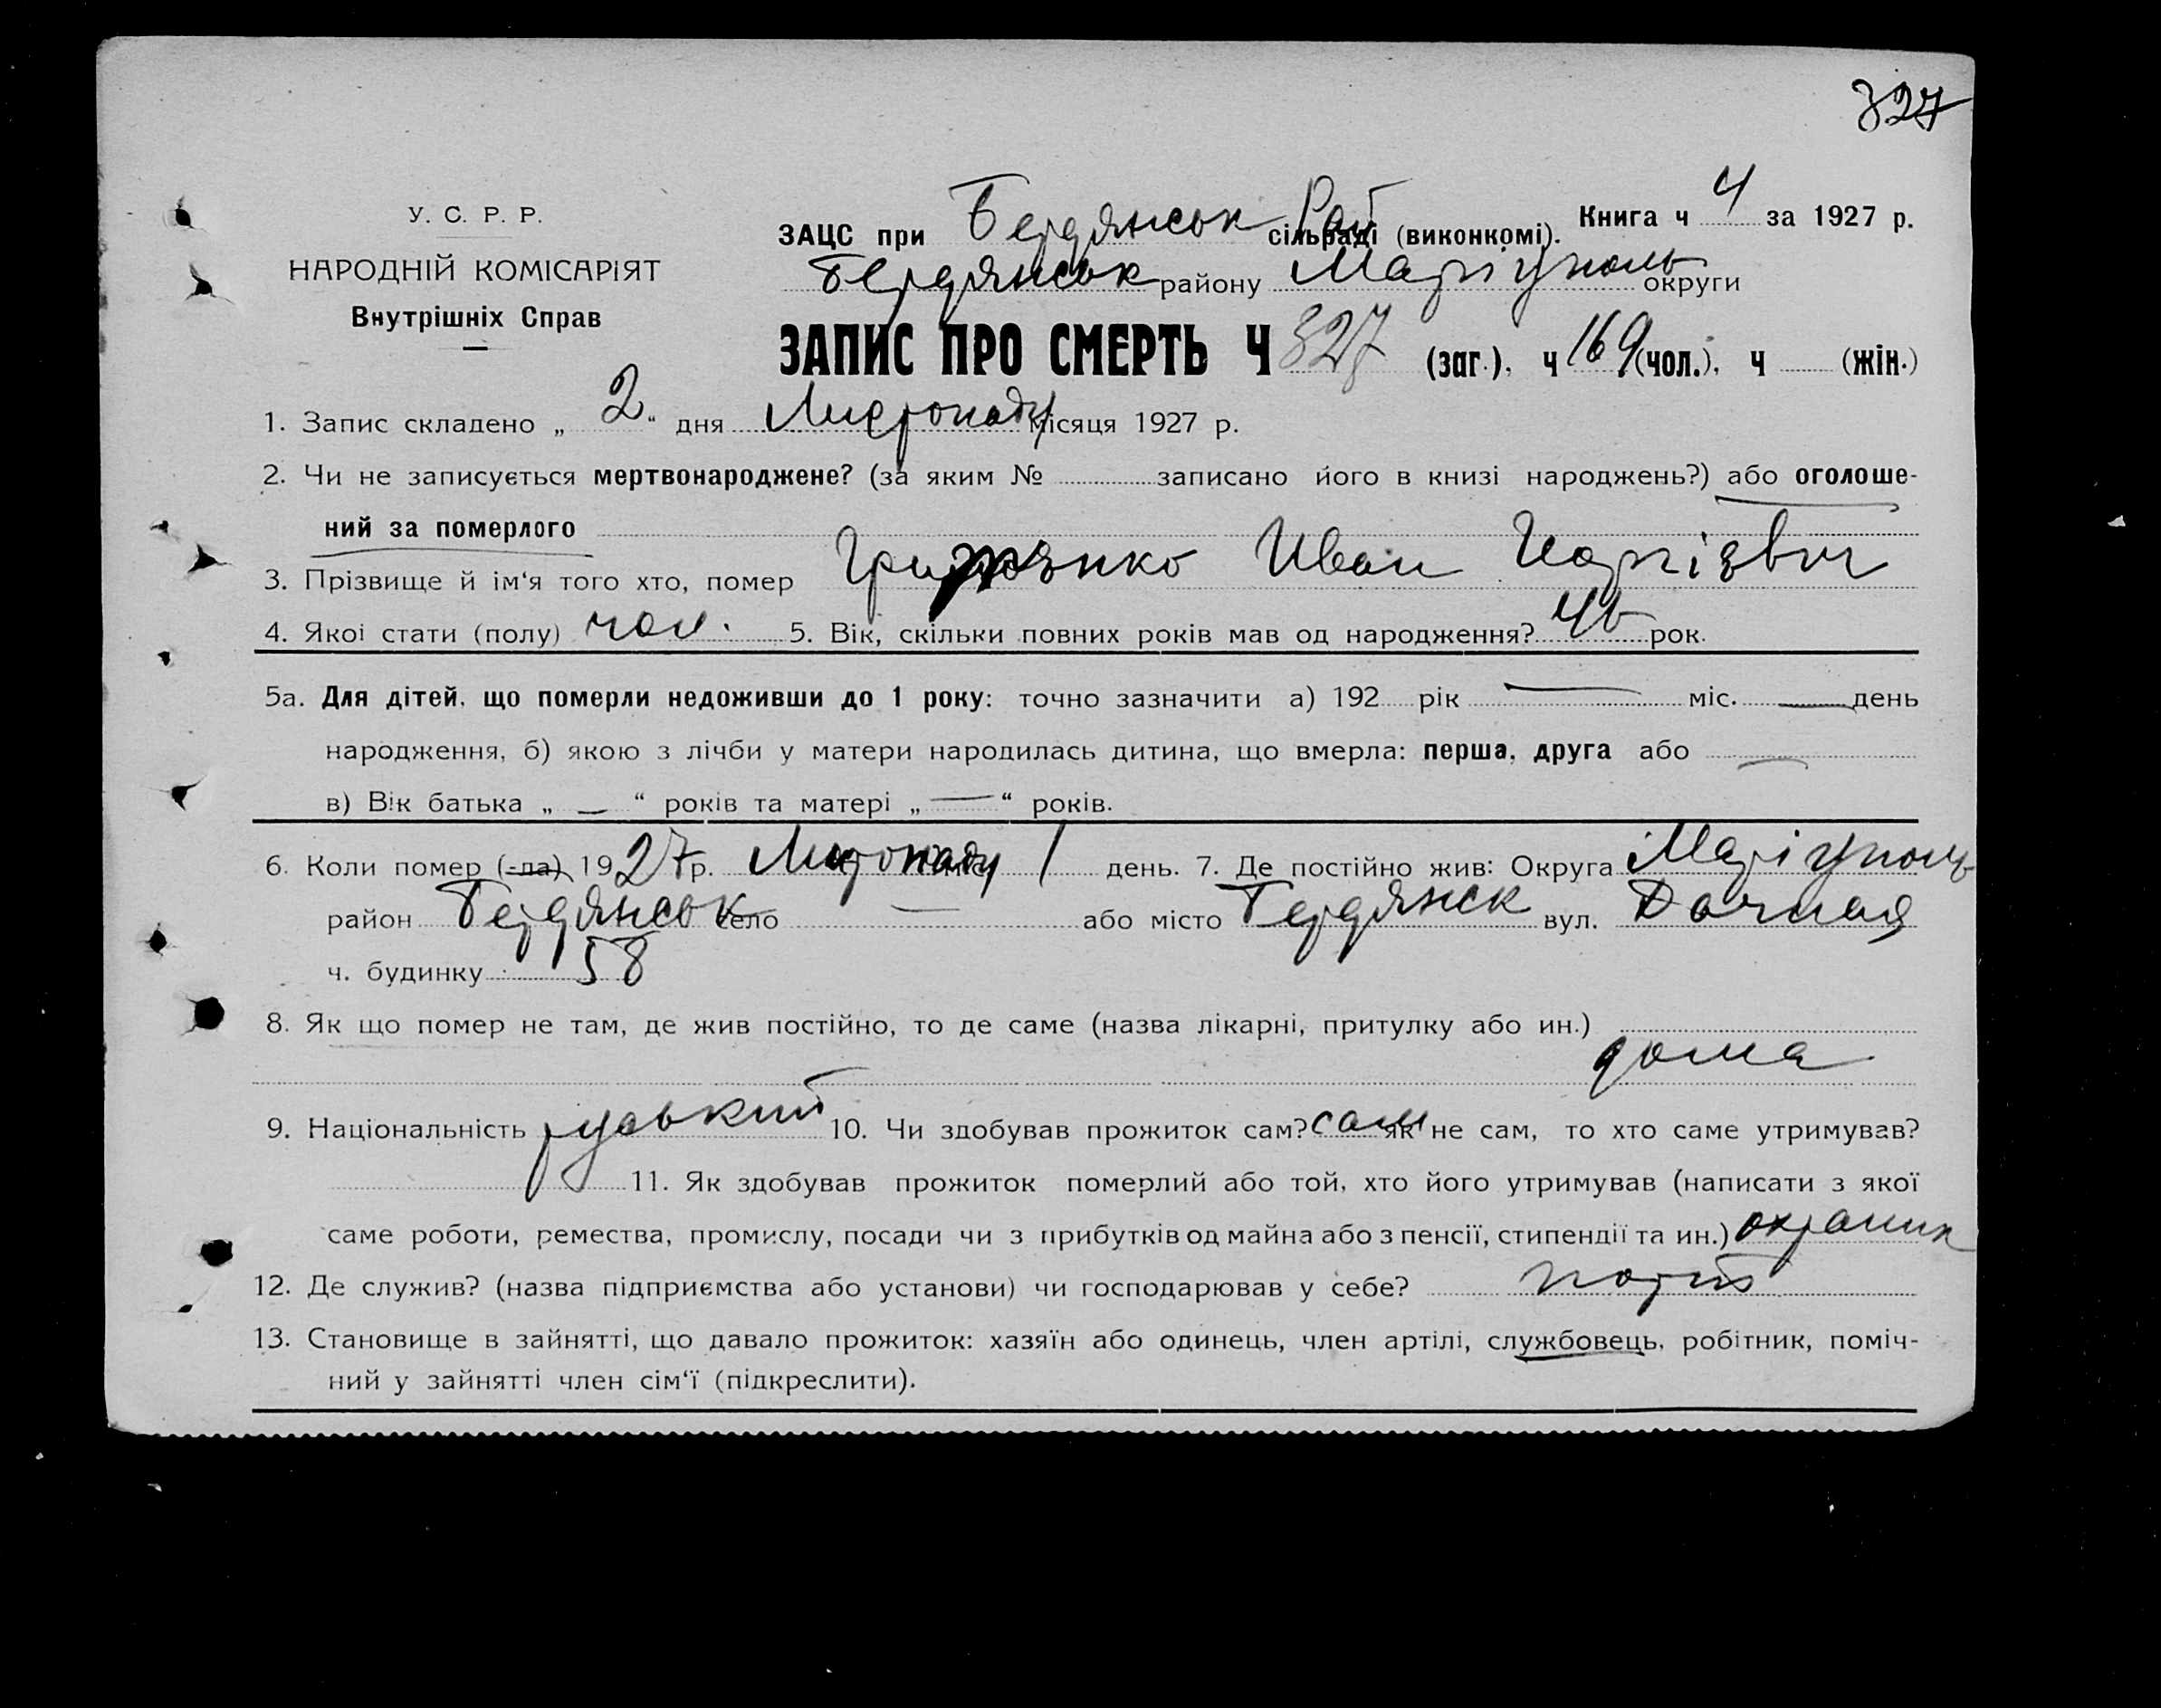 327
У. С. Р. Р.
НАРОДНІЙ КОМІСАРІЯТ
Внутрішніх Справ
ЗАЦС при Бердянськ Рай сільраді (виконкомі). Книга ч 4 за 1927 р.
Бердянськ району Маріуполь округи
ЗАПИС ПРО СМЕРТЬ Ч 327 (заг.), ч 169 (чол.), ч (жін.)
1. Запис складено „ 2 “ дня Листопаду місяця 1927 р.
2. Чи не записується мертвонароджене? (за яким № записано його в книзі народжень?) або оголоше-
ний за померлого
3. Прізвище й ім‘я того хто, помер Иван
4. Якої стати (полу) чол. 5. Вік, скільки повних років мав од народження? рок.
5а. Для дітей, що померли недоживши до 1 року: точно зазначити а) 192 рік — міс. — день
народження, б) якою з лічби у матери народилась дитина, що вмерла: перша, друга або —
в) Вік батька „ — “ років та матері „ — “ років.
6. Коли помер (-ла) 1927 р. Листопаду міс. 1 день. 7. Де постійно жив: Округа Маріуполь
район Бердянськ село — або місто Бердянск вул. Дачная
ч. будинку 58
8. Як що помер не там, де жив постійно, то де саме (назва лікарні, притулку або ин.)
дома
9. Національність руський 10. Чи здобував прожиток сам? сам як не сам, то хто саме утримував?
11. Як здобував прожиток померлий або той, хто його утримував (написати з якої
саме роботи, ремества, промислу, посади чи з прибутків од майна або з пенсії, стипендії та ин.) охраник
12. Де служив? (назва підприємства або установи) чи господарював у себе? порт
13. Становище в зайнятті, що давало прожиток: хазяїн або одинець, член артілі, службовець, робітник, поміч-
ний у зайнятті член сім‘ї (підкреслити).